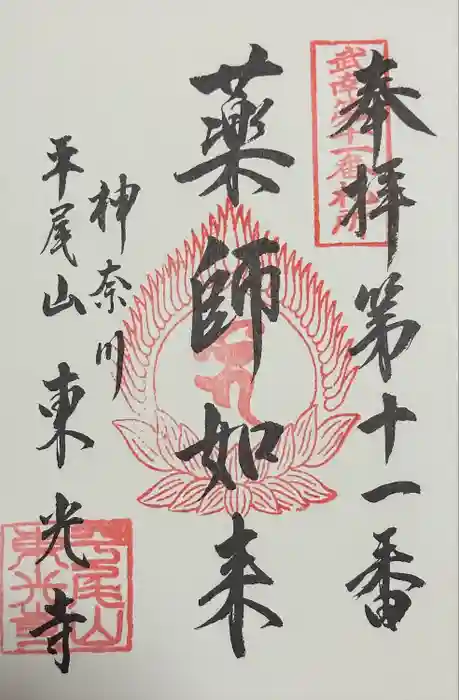 奉拝第十一番
武南第十一番札所
薬師如来
神奈川
平尾山東光寺
平尾山
東光寺